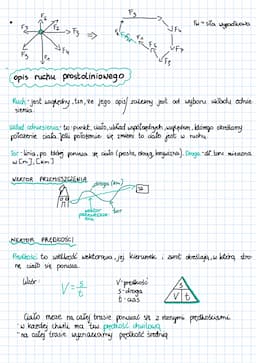 F₃ F₄
Fw - siła wypadkowa
opis ruchu prostoliniowego
Ruch - jest względny, tzn, że jego opis zależny jest od wyboru układu odnie-
sienia.
Układ odniesienia - to punkt, ciało, układ współrzędnych, względem którego określamy
położenie ciała. Jeśli położenie się zmieni to ciało jest w ruchu
Tor - linia, po której porusza się ciało (prosta, okrąg, krzywizna). Droga - dł. toru mierzona
w [m], [km]
WEKTOR PRZEMIESZCZENIA
droga (km)
wektor
przemieszcze-
nia
tor
WEKTOR PRĘDKOŚCI
Prędkość to wielkość wektorowa, jej kierunek i zwrot określają, w którą stro-
nę ciało się porusza.
Wzór:
V = s/t
V - prędkość
s - droga
t - czas
s
V t
Ciało może na całej trasie poruszać się z różnymi prędkościami
- w każdej chwili ma tzw prędkość chwilową
- na całej trasie wyznaczamy prędkość średnią